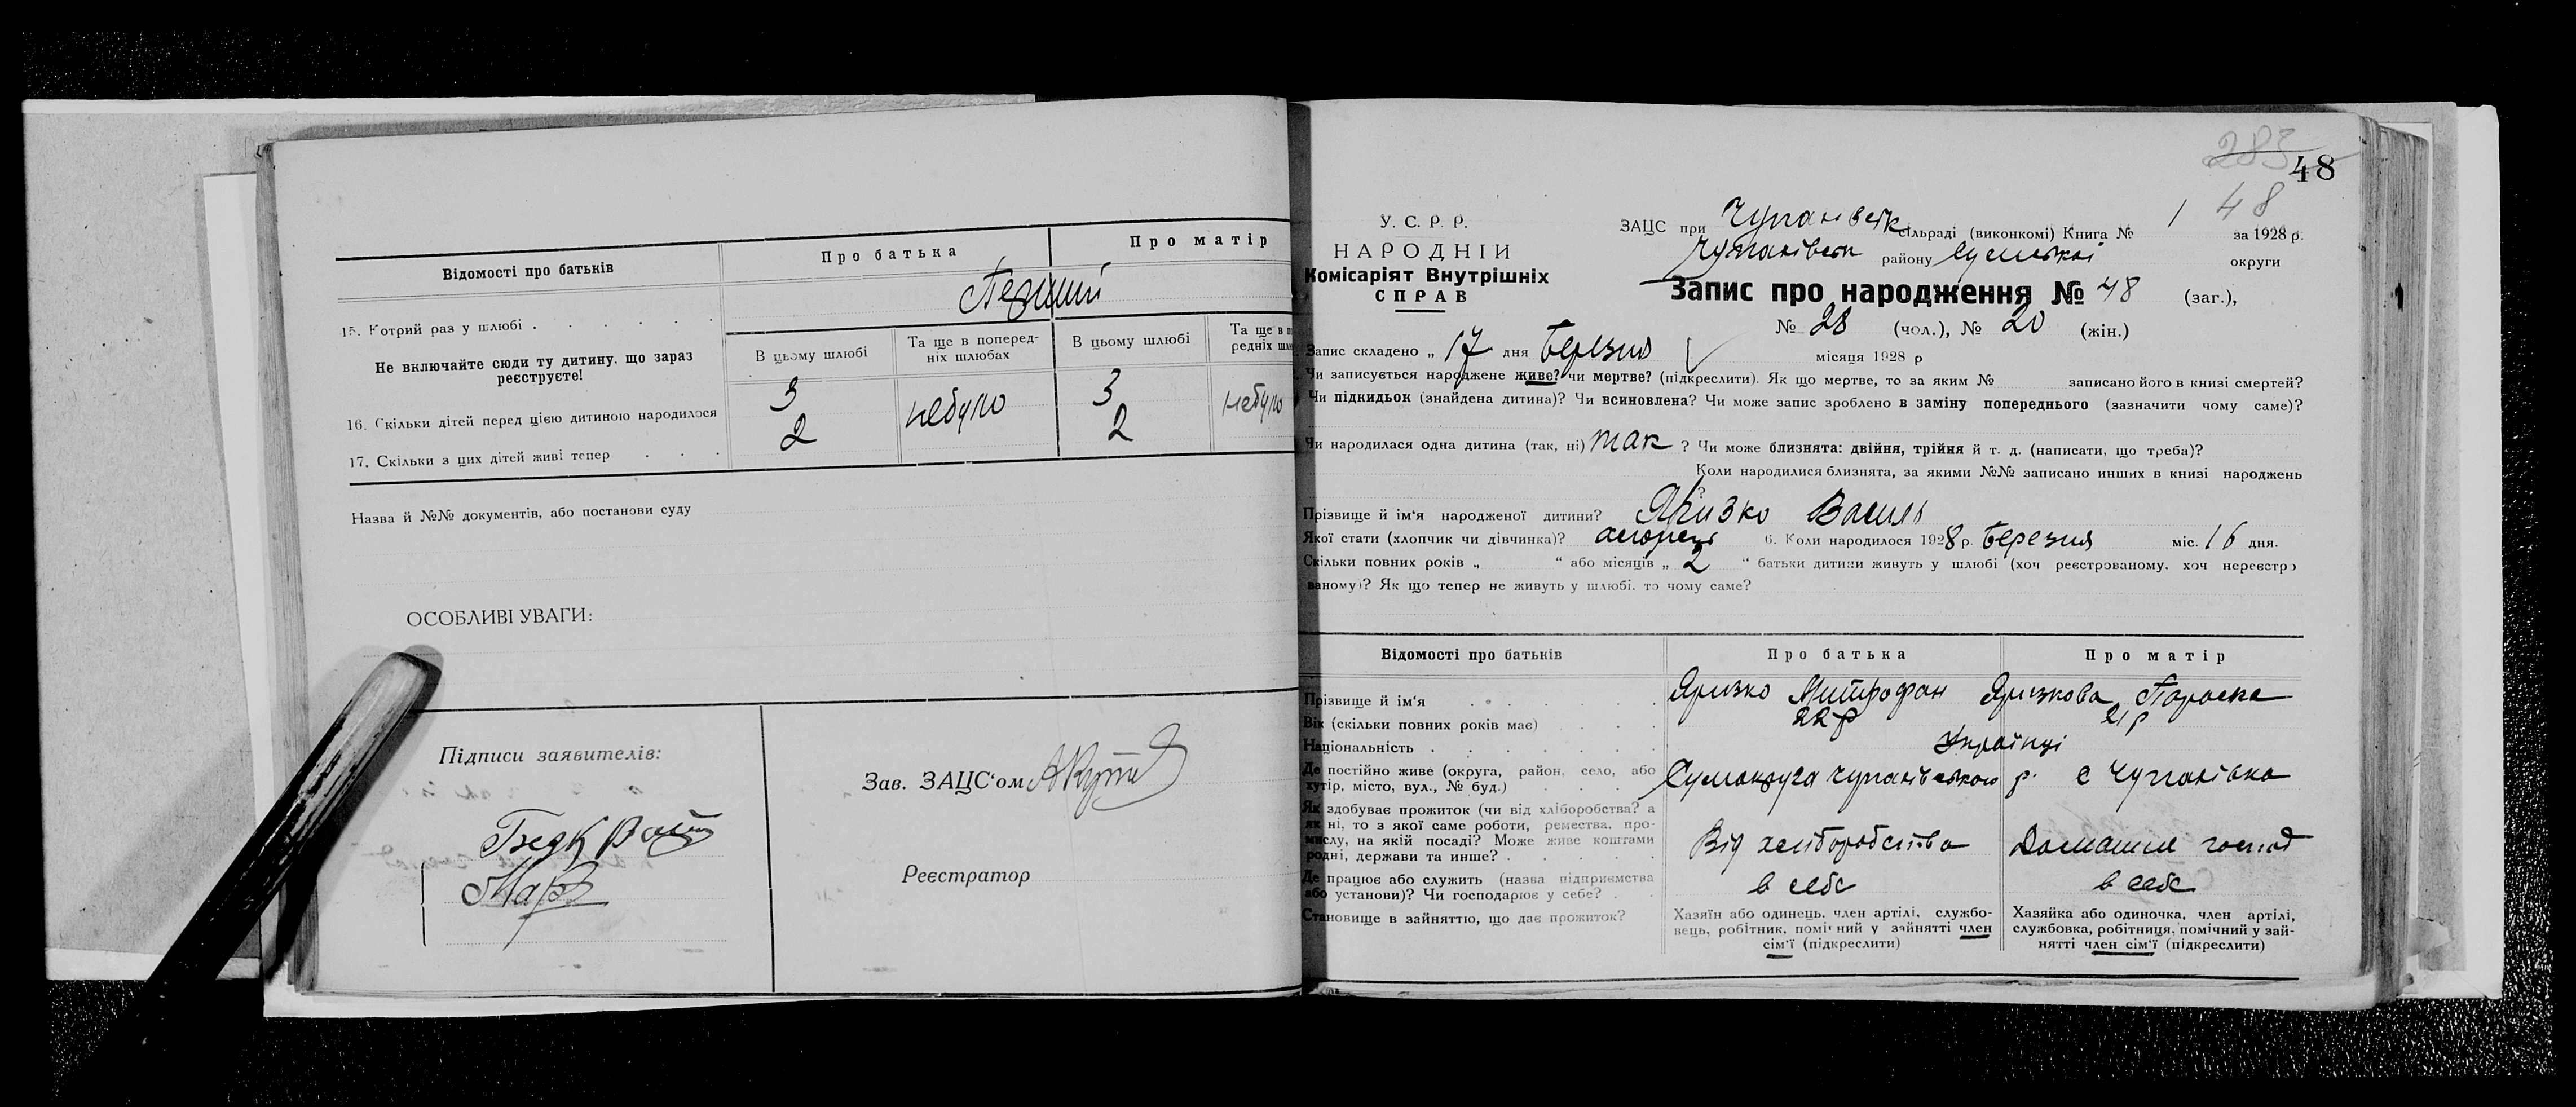 Відомості про батьків
Про батька
Про матір
15. Котрий раз у шлюбі
Перший
Не включайте сюди ту дитину, що зараз реєструєте!
В цьому шлюбі
Та ще в поперед-
ніх шлюбах
В цьому шлюбі
Та ще в
редніх
16. Скільки дітей перед цією дитиною народилося
3
небуло
3
небуло
17. Скільки з цих дітей живі тепер
2
2
Назва й №№ документів, або постанови суду
ОСОБЛИВІ УВАГИ:
Підписи заявителів:
Зав. ЗАЦС'ом
Реєстратор
283
48
48
У. С. Р. Р.
НАРОДНІЙ
Комісаріят Внутрішніх
СПРАВ
ЗАЦС при сільраді (виконкомі) Книга № 1 за 1928 р.
району Сумської округи
Запис про народження № 48 (заг.),
№ 28 (чол.), № 20 (жін.)
Запис складено „ 17 дня Березня місяця 1928 р
Чи записується народжене живе? чи мертве? (підкреслити). Як що мертве, то за яким № записано його в книзі смертей?
Чи підкидьок (знайдена дитина)? Чи всиновлена? Чи може запис зроблено в заміну попереднього (зазначити чому саме)?
Чи народилася одна дитина (так, ні) так ? Чи може близнята: двійня, трійня й т. д. (написати, що треба)?
Коли народилися близнята, за якими №№ записано инших в книзі народжень
?
Прізвище й ім'я народженої дитини? Яризко Василь
Якої стати (хлопчик чи дівчинка)? 6. Коли народилося 1928 р. Березня міс. 16 дня.
Скільки повних років „ “ або місяців „ 2 “ батьки дитини живуть у шлюбі (хоч реєстрованому, хоч нереєстро
ваному)? Як що тепер не живуть у шлюбі, то чому саме?
Відомості про батьків
Про батька
Про матір
Прізвище й ім'я
Яризко Митрофан
Яризкова Параска
Вік (скільки повних років має)
22 р
21 р
Національність
Українці
Де постійно живе (округа, район, село, або
хутір, місто, вул., № буд.)
Сумокруга Чупахівського р. с Чупахівка
Як здобуває прожиток (чи від хліборобства? а
як ні, то з якої саме роботи, ремества, про-
мислу, на якій посаді? Може живе коштами
родні, держави та инше?
Від хліборобства
Домашнє господ
Де працює або служить (назва підприємства
або установи)? Чи господарює у себе?
в себе
в себе
Становище в зайняттю, що дає прожиток?
Хазяїн або одинець, член артілі, службо-
вець, робітник, помічний у зайнятті член
сім'ї (підкреслити)
Хазяйка або одиночка, член артілі,
службовка, робітниця, помічний у зай-
нятті член сім'ї (підкреслити)